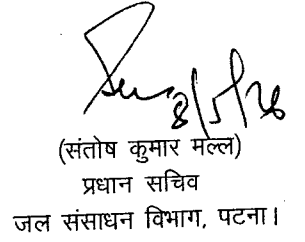 8/5/26
(संतोष कुमार मल्ल)
प्रधान सचिव
जल संसाधन विभाग, पटना।